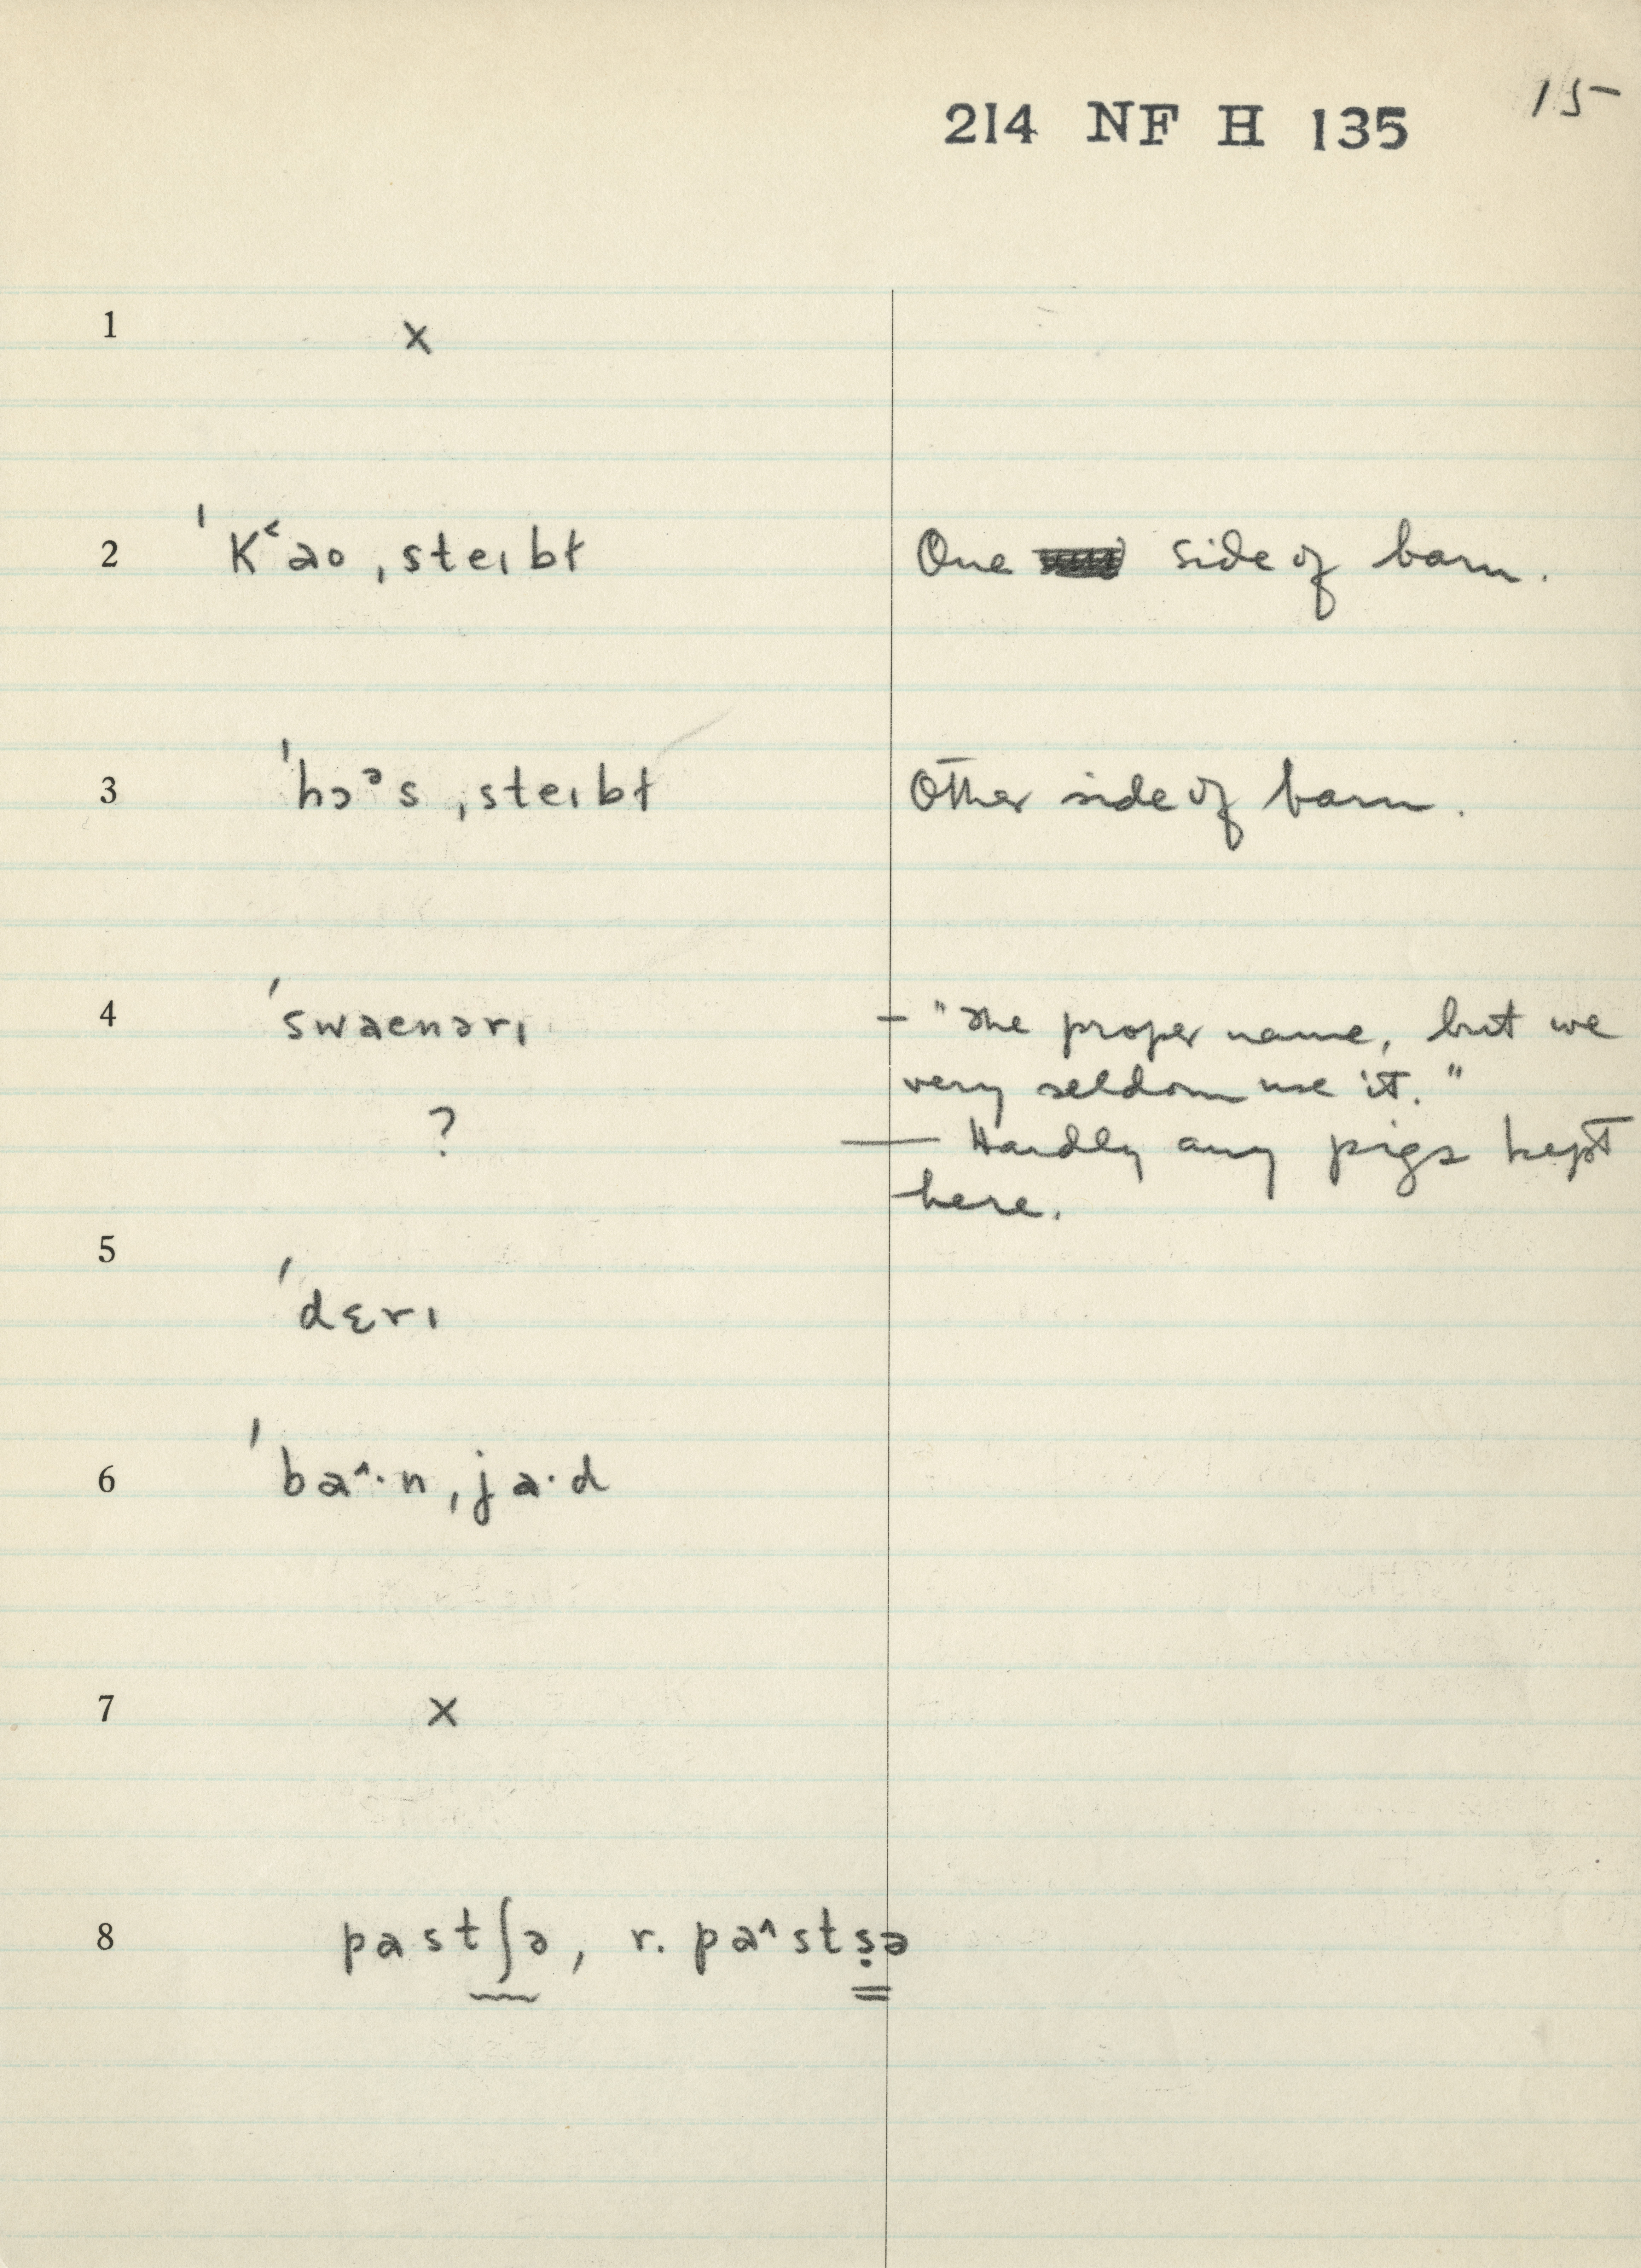 15
214 NF H 135
1 x
2 ˈK˂ao ˌsteɪbɫ One side of barn.
3 ˈhɔᵊs ˌsteɪbɫ Other side of barn.
4 ˈswaenərɪ – "The proper name, but we
very seldom use it."
? — Hardly any pigs kept
here.
5 ˈdɛrɪ
6 ˈba^·n ˌja·d
7 x
8 pastʃə, r. pa^stṣə